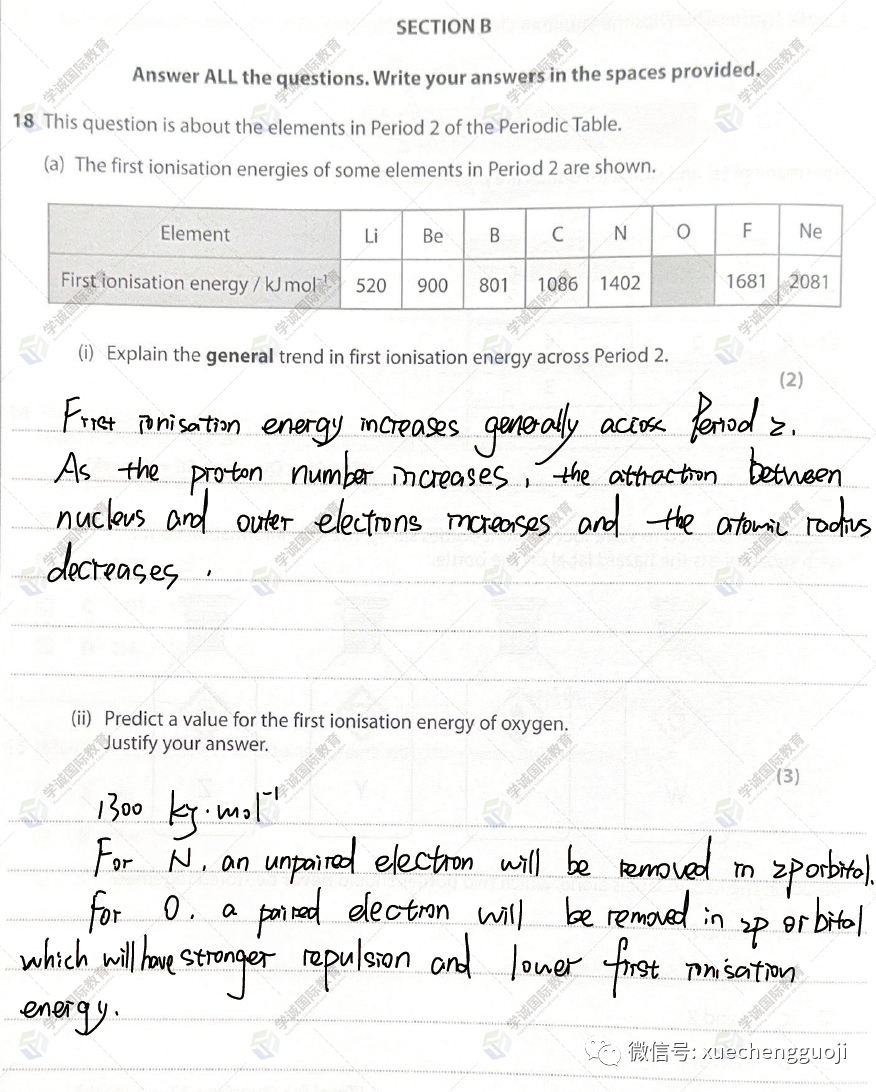 SECTION B
Answer ALL the questions. Write your answers in the spaces provided.
18 This question is about the elements in Period 2 of the Periodic Table.
(a) The first ionisation energies of some elements in Period 2 are shown.
Element Li Be B C N O F Ne
First ionisation energy / kJ mol⁻¹ 520 900 801 1086 1402 1681 2081
(i) Explain the general trend in first ionisation energy across Period 2.
(2)
First ionisation energy increases generally across Period 2.
As the proton number increases, the attraction between
nucleus and outer electrons increases and the atomic radius
decreases.
(ii) Predict a value for the first ionisation energy of oxygen.
Justify your answer.
(3)
1300 kJ·mol⁻¹
For N, an unpaired electron will be removed in 2p orbital.
for O, a paired electron will be removed in 2p orbital
which will have stronger repulsion and lower first ionisation
energy.
学诚国际教育
微信号: xuechengguoji